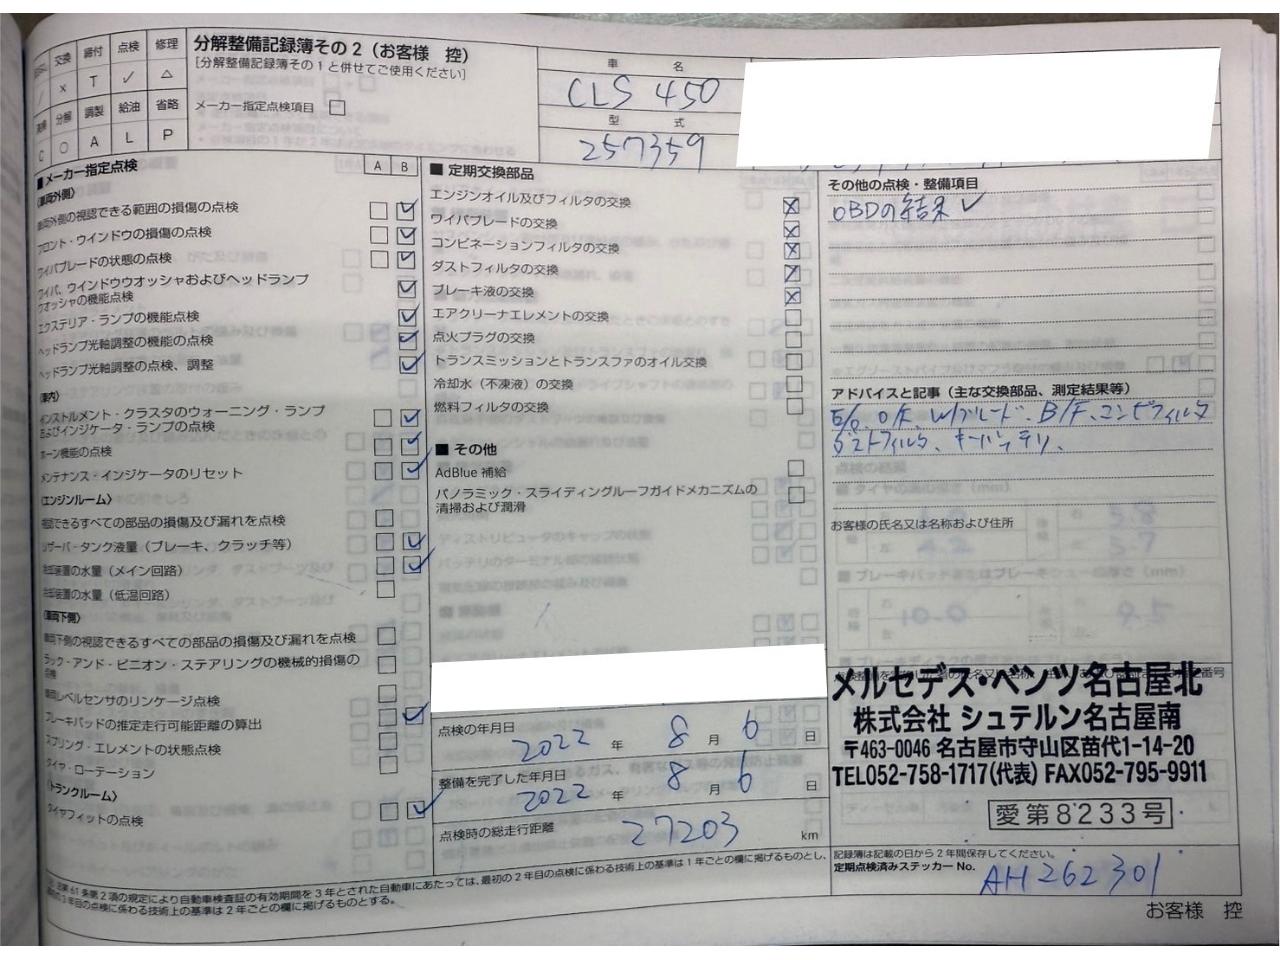 交換 締付 点検 修理
× T ✓ △
分解 調整 給油 省略
C ○ A L P
分解整備記録簿その2（お客様 控）
[分解整備記録簿その1と併せてご使用ください]
メーカー指定点検項目 □
車 名
CLS 450
型 式
257359
■メーカー指定点検
A B
〈車両外側〉
車両外側の視認できる範囲の損傷の点検
フロント・ウインドウの損傷の点検
ワイパブレードの状態の点検
ワイパ、ウインドウウオッシャおよびヘッドランプ
ウオッシャの機能点検
エクステリア・ランプの機能点検
ヘッドランプ光軸調整の機能の点検
ヘッドランプ光軸調整の点検、調整
〈車内〉
インストルメント・クラスタのウォーニング・ランプ
およびインジケータ・ランプの点検
ホーン機能の点検
メンテナンス・インジケータのリセット
〈エンジンルーム〉
視認できるすべての部品の損傷及び漏れを点検
リザーバ・タンク液量（ブレーキ、クラッチ等）
冷却装置の水量（メイン回路）
冷却装置の水量（低温回路）
〈車両下側〉
車両下側の視認できるすべての部品の損傷及び漏れを点検
ラック・アンド・ピニオン・ステアリングの機械的損傷の
点検
車両レベルセンサのリンケージ点検
ブレーキパッドの推定走行可能距離の算出
スプリング・エレメントの状態点検
タイヤ・ローテーション
〈トランクルーム〉
タイヤフィットの点検
■ 定期交換部品
エンジンオイル及びフィルタの交換
ワイパブレードの交換
コンビネーションフィルタの交換
ダストフィルタの交換
ブレーキ液の交換
エアクリーナエレメントの交換
点火プラグの交換
トランスミッションとトランスファのオイル交換
冷却水（不凍液）の交換
燃料フィルタの交換
■ その他
AdBlue 補給
パノラミック・スライディングルーフガイドメカニズムの
清掃および潤滑
点検の年月日
2022 年 8 月 6 日
整備を完了した年月日
2022 年 8 月 6 日
点検時の総走行距離
27203 km
その他の点検・整備項目
OBDの結果 ✓
アドバイスと記事（主な交換部品、測定結果等）
E/O、O/E、W/ブレード、B/F、コンビフィルタ
ダストフィルタ、キーバッテリ、
お客様の氏名又は名称および住所
メルセデス・ベンツ名古屋北
株式会社 シュテルン名古屋南
〒463-0046 名古屋市守山区苗代1-14-20
TEL052-758-1717(代表) FAX052-795-9911
愛第8233号
記録簿は記載の日から2年間保存してください。
定期点検済みステッカー No.
AH262301
法第61条第2項の規定により自動車検査証の有効期間を3年とされた自動車にあたっては、最初の2年目の点検に係わる技術上の基準は1年ごとの欄に掲げるものとし、
3年目の点検に係わる技術上の基準は2年ごとの欄に掲げるものとする。
お客様 控